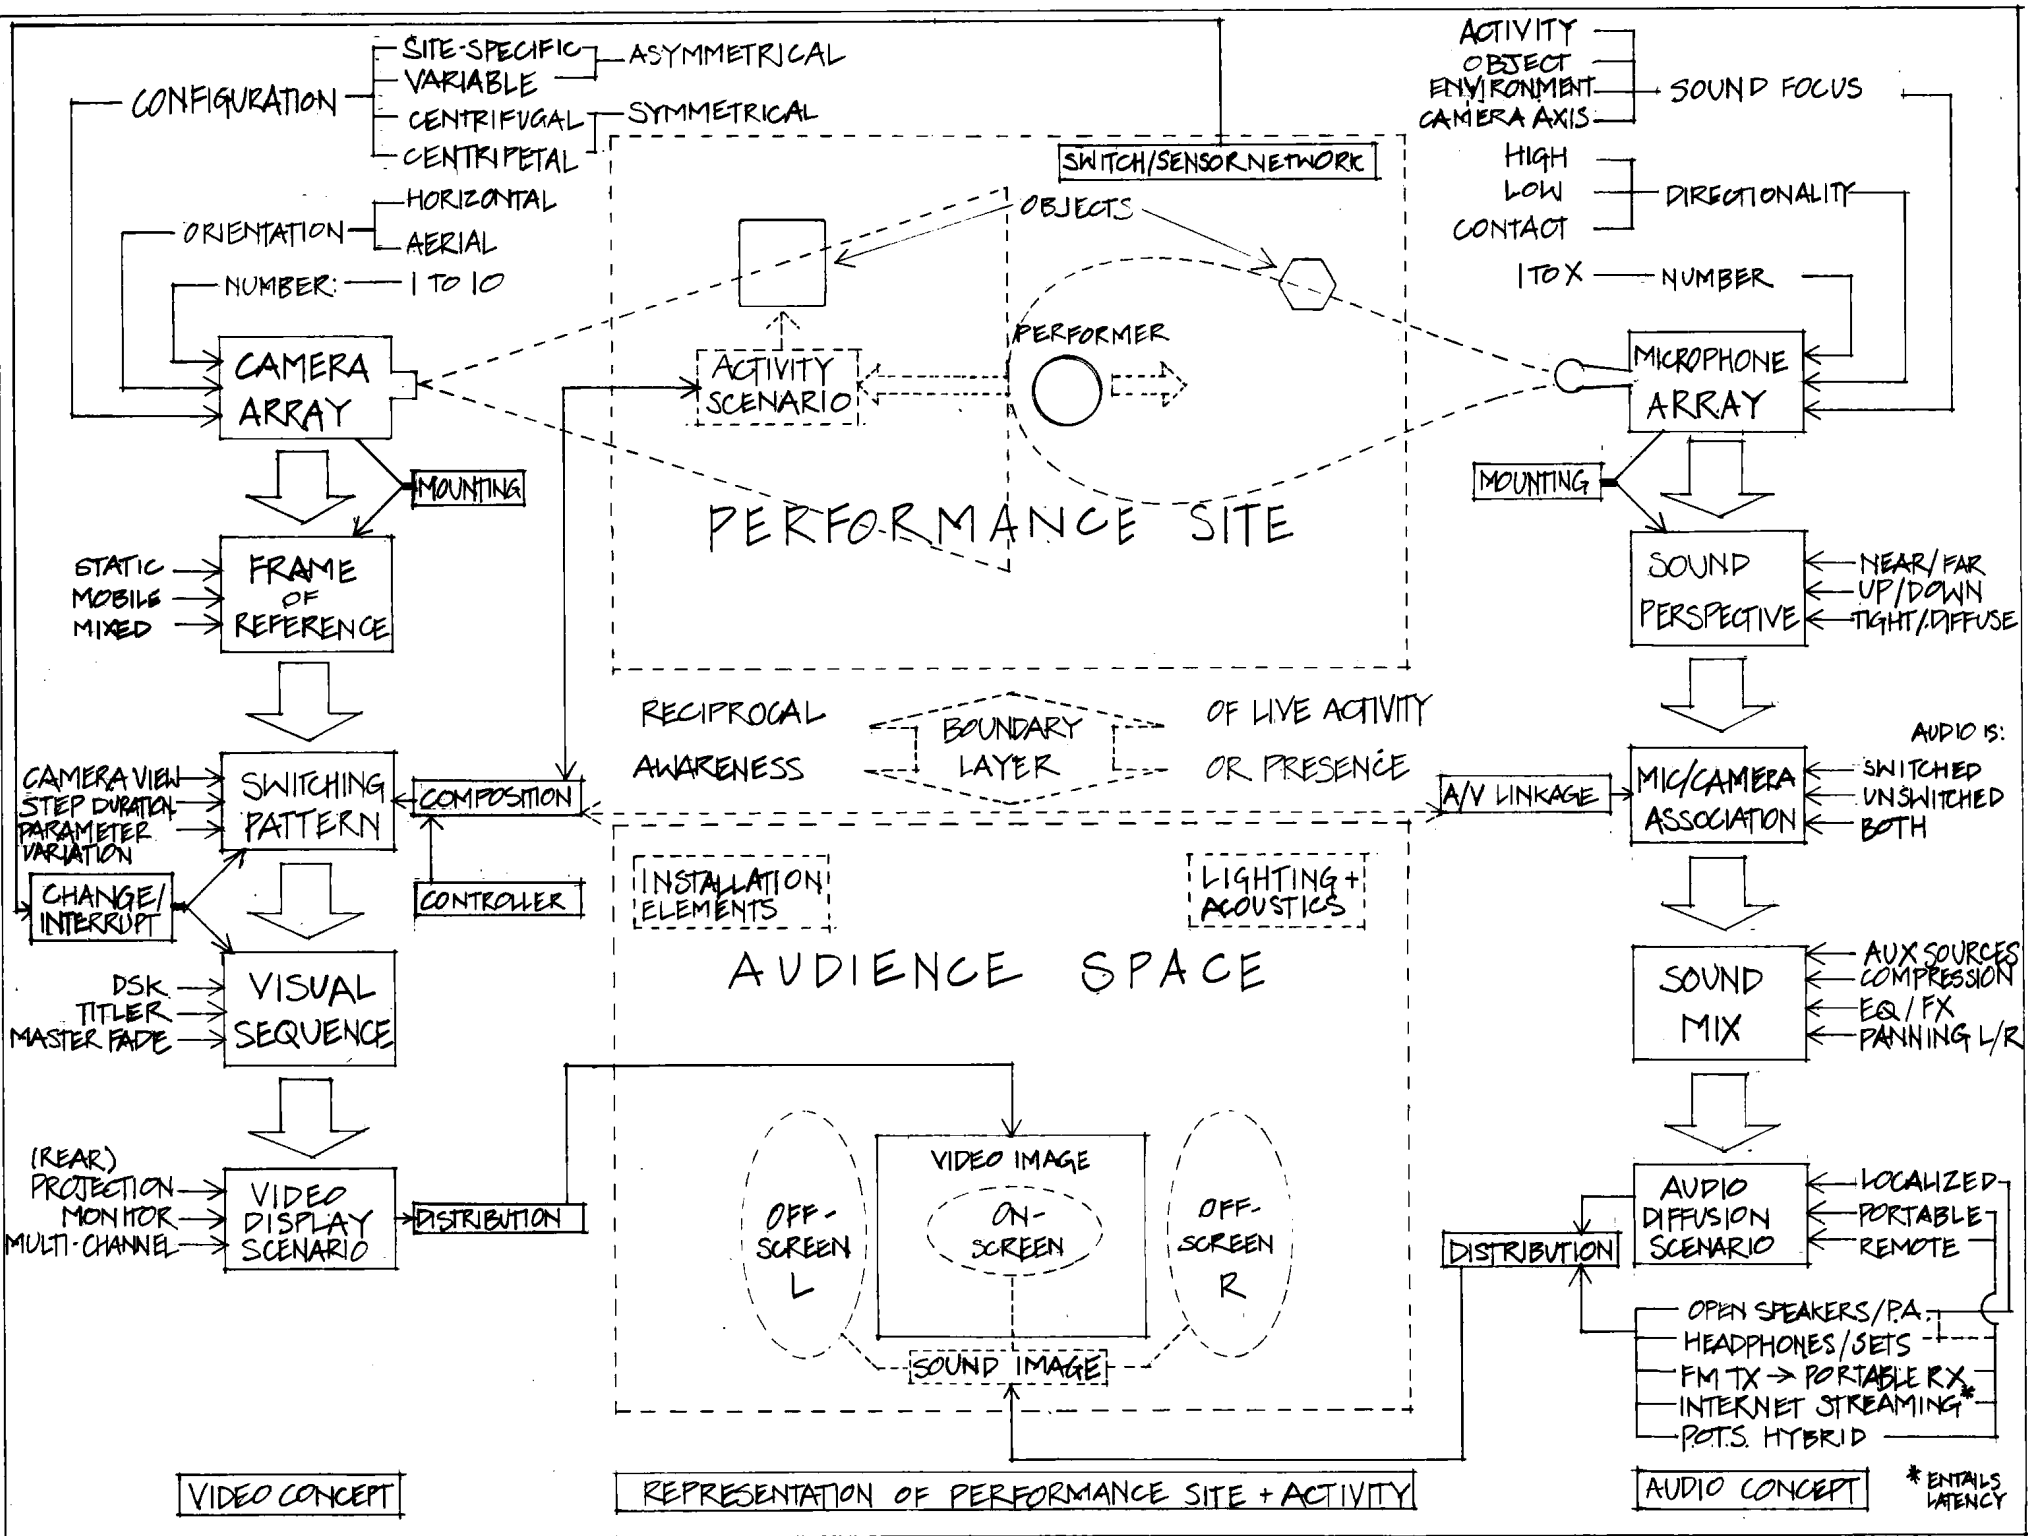 CONFIGURATION
SITE-SPECIFIC
VARIABLE
ASYMMETRICAL
CENTRIFUGAL
CENTRIPETAL
SYMMETRICAL
ORIENTATION
HORIZONTAL
AERIAL
NUMBER:
1 TO 10
CAMERA
ARRAY
MOUNTING
STATIC
MOBILE
MIXED
FRAME
OF
REFERENCE
CAMERA VIEW
STEP DURATION
PARAMETER
VARIATION
SWITCHING
PATTERN
COMPOSITION
CONTROLLER
CHANGE/
INTERRUPT
DSK
TITLER
MASTER FADE
VISUAL
SEQUENCE
(REAR)
PROJECTION
MONITOR
MULTI-CHANNEL
VIDEO
DISPLAY
SCENARIO
DISTRIBUTION
VIDEO CONCEPT
SWITCH/SENSOR NETWORK
OBJECTS
PERFORMER
ACTIVITY
SCENARIO
PERFORMANCE SITE
RECIPROCAL
AWARENESS
BOUNDARY
LAYER
OF LIVE ACTIVITY
OR PRESENCE
INSTALLATION
ELEMENTS
LIGHTING +
ACOUSTICS
AUDIENCE SPACE
VIDEO IMAGE
OFF-
SCREEN
L
ON-
SCREEN
OFF-
SCREEN
R
SOUND IMAGE
REPRESENTATION OF PERFORMANCE SITE + ACTIVITY
ACTIVITY
OBJECT
ENVIRONMENT
CAMERA AXIS
SOUND FOCUS
HIGH
LOW
CONTACT
DIRECTIONALITY
1 TO X
NUMBER
MICROPHONE
ARRAY
MOUNTING
SOUND
PERSPECTIVE
NEAR/FAR
UP/DOWN
TIGHT/DIFFUSE
AUDIO IS:
SWITCHED
UNSWITCHED
BOTH
A/V LINKAGE
MIC/CAMERA
ASSOCIATION
SOUND
MIX
AUX SOURCES
COMPRESSION
EQ/FX
PANNING L/R
AUDIO
DIFFUSION
SCENARIO
LOCALIZED
PORTABLE
REMOTE
DISTRIBUTION
OPEN SPEAKERS/P.A.
HEADPHONES/SETS
FM TX → PORTABLE RX
INTERNET STREAMING*
P.O.T.S. HYBRID
AUDIO CONCEPT
* ENTAILS
LATENCY